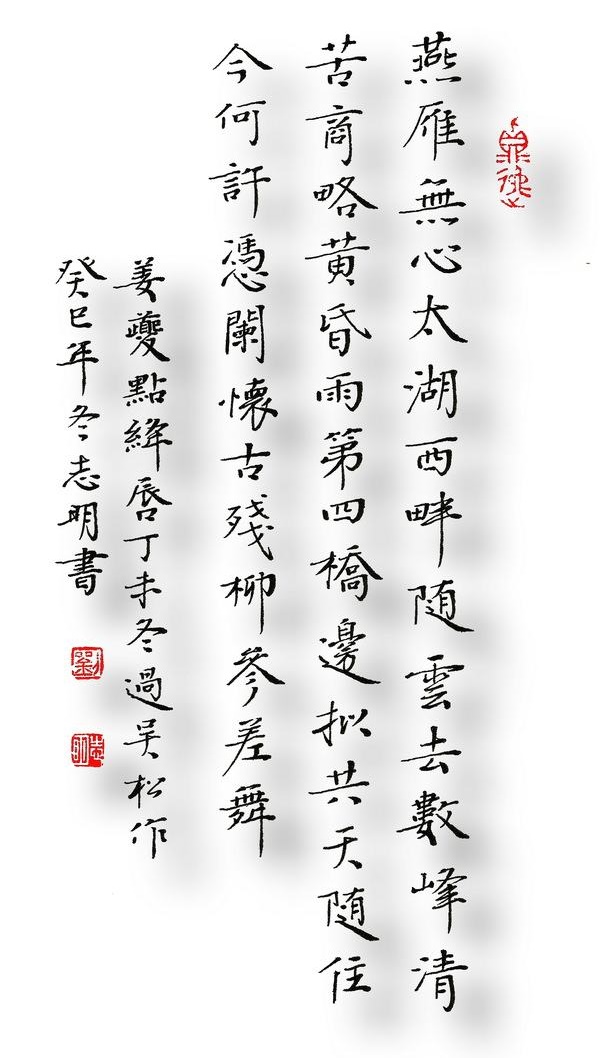 燕雁無心太湖西畔随雲去數峰清
苦商略黄昏雨第四橋邊拟共天随住
今何許憑闌懷古殘柳參差舞
姜夔點絳唇丁未冬過吴松作
癸巳年冬志明書
劉
志明